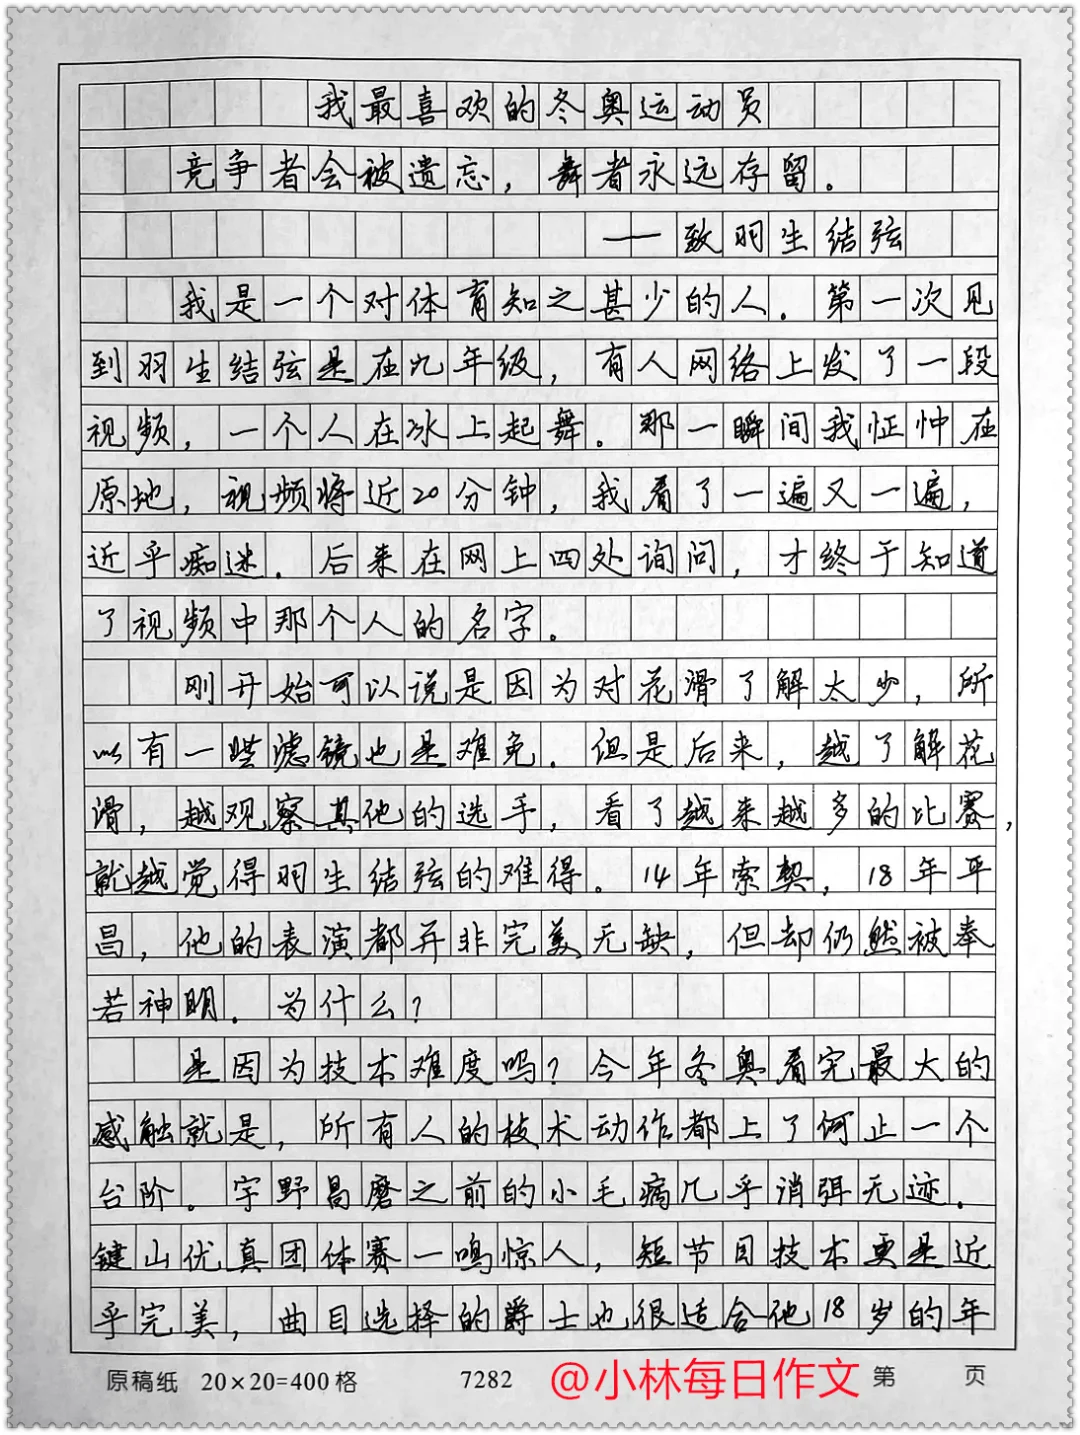 我最喜欢的冬奥运动员
竞争者会被遗忘，舞者永远存留。
——致羽生结弦
我是一个对体育知之甚少的人。第一次见
到羽生结弦是在九年级，有人网络上发了一段
视频，一个人在冰上起舞。那一瞬间我怔忡在
原地，视频将近20分钟，我看了一遍又一遍，
近乎痴迷。后来在网上四处询问，才终于知道
了视频中那个人的名字。
刚开始可以说是因为对花滑了解太少，所
以有一些滤镜也是难免。但是后来，越了解花
滑，越观察其他的选手，看了越来越多的比赛，
就越觉得羽生结弦的难得。14年索契，18年平
昌，他的表演都并非完美无缺，但却仍然被奉
若神明。为什么？
是因为技术难度吗？今年冬奥看完最大的
感触就是，所有人的技术动作都上了何止一个
台阶。宇野昌磨之前的小毛病几乎消弭无迹。
键山优真团体赛一鸣惊人，短节目技术更是近
乎完美，曲目选择的爵士也很适合他18岁的年
原稿纸 20×20=400格 7282 @小林每日作文 第 页